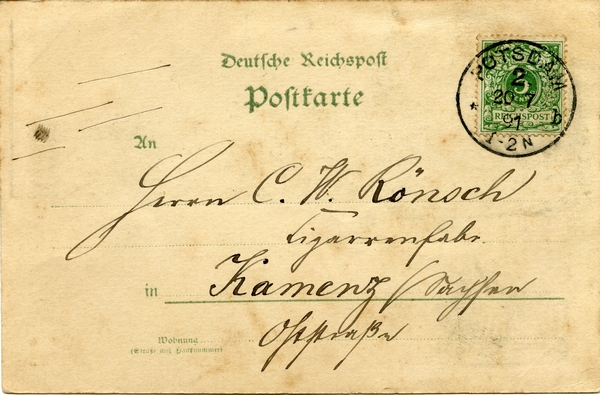 Deutsche Reichspost
Postkarte
POTSDAM
2
20 7
91
1-2N
b
5
REICHSPOST
An
Herrn C. W. Rönsch
Cigarrenfabr.
in Kamenz / Sachsen
Oststraße
Wohnung
(Straße und Hausnummer)